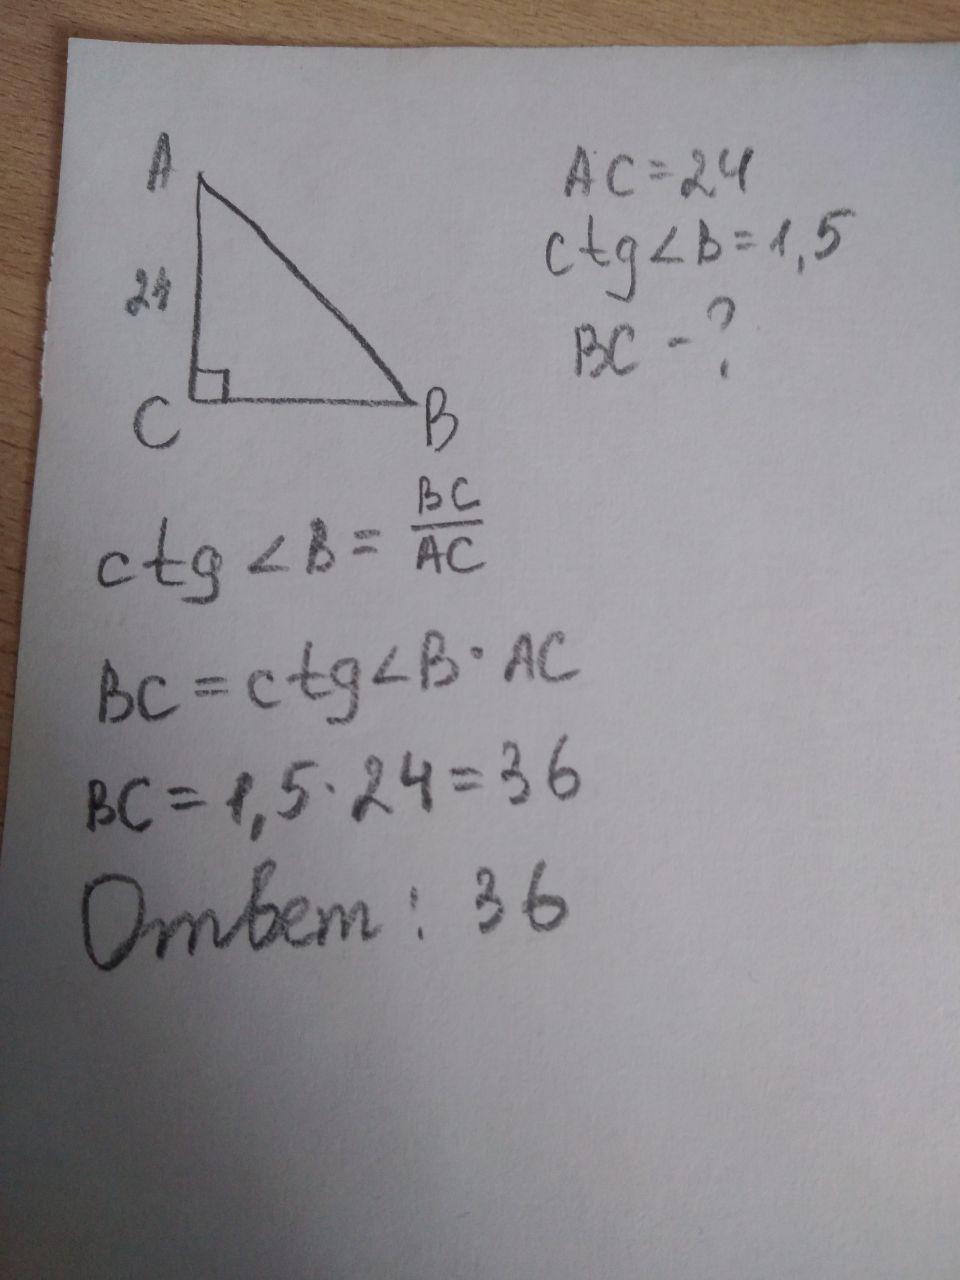 A
24
C
B
AC = 24
ctg∠B = 1,5
BC - ?
ctg∠B = BC/AC
BC = ctg∠B · AC
BC = 1,5 · 24 = 36
Ответ: 36